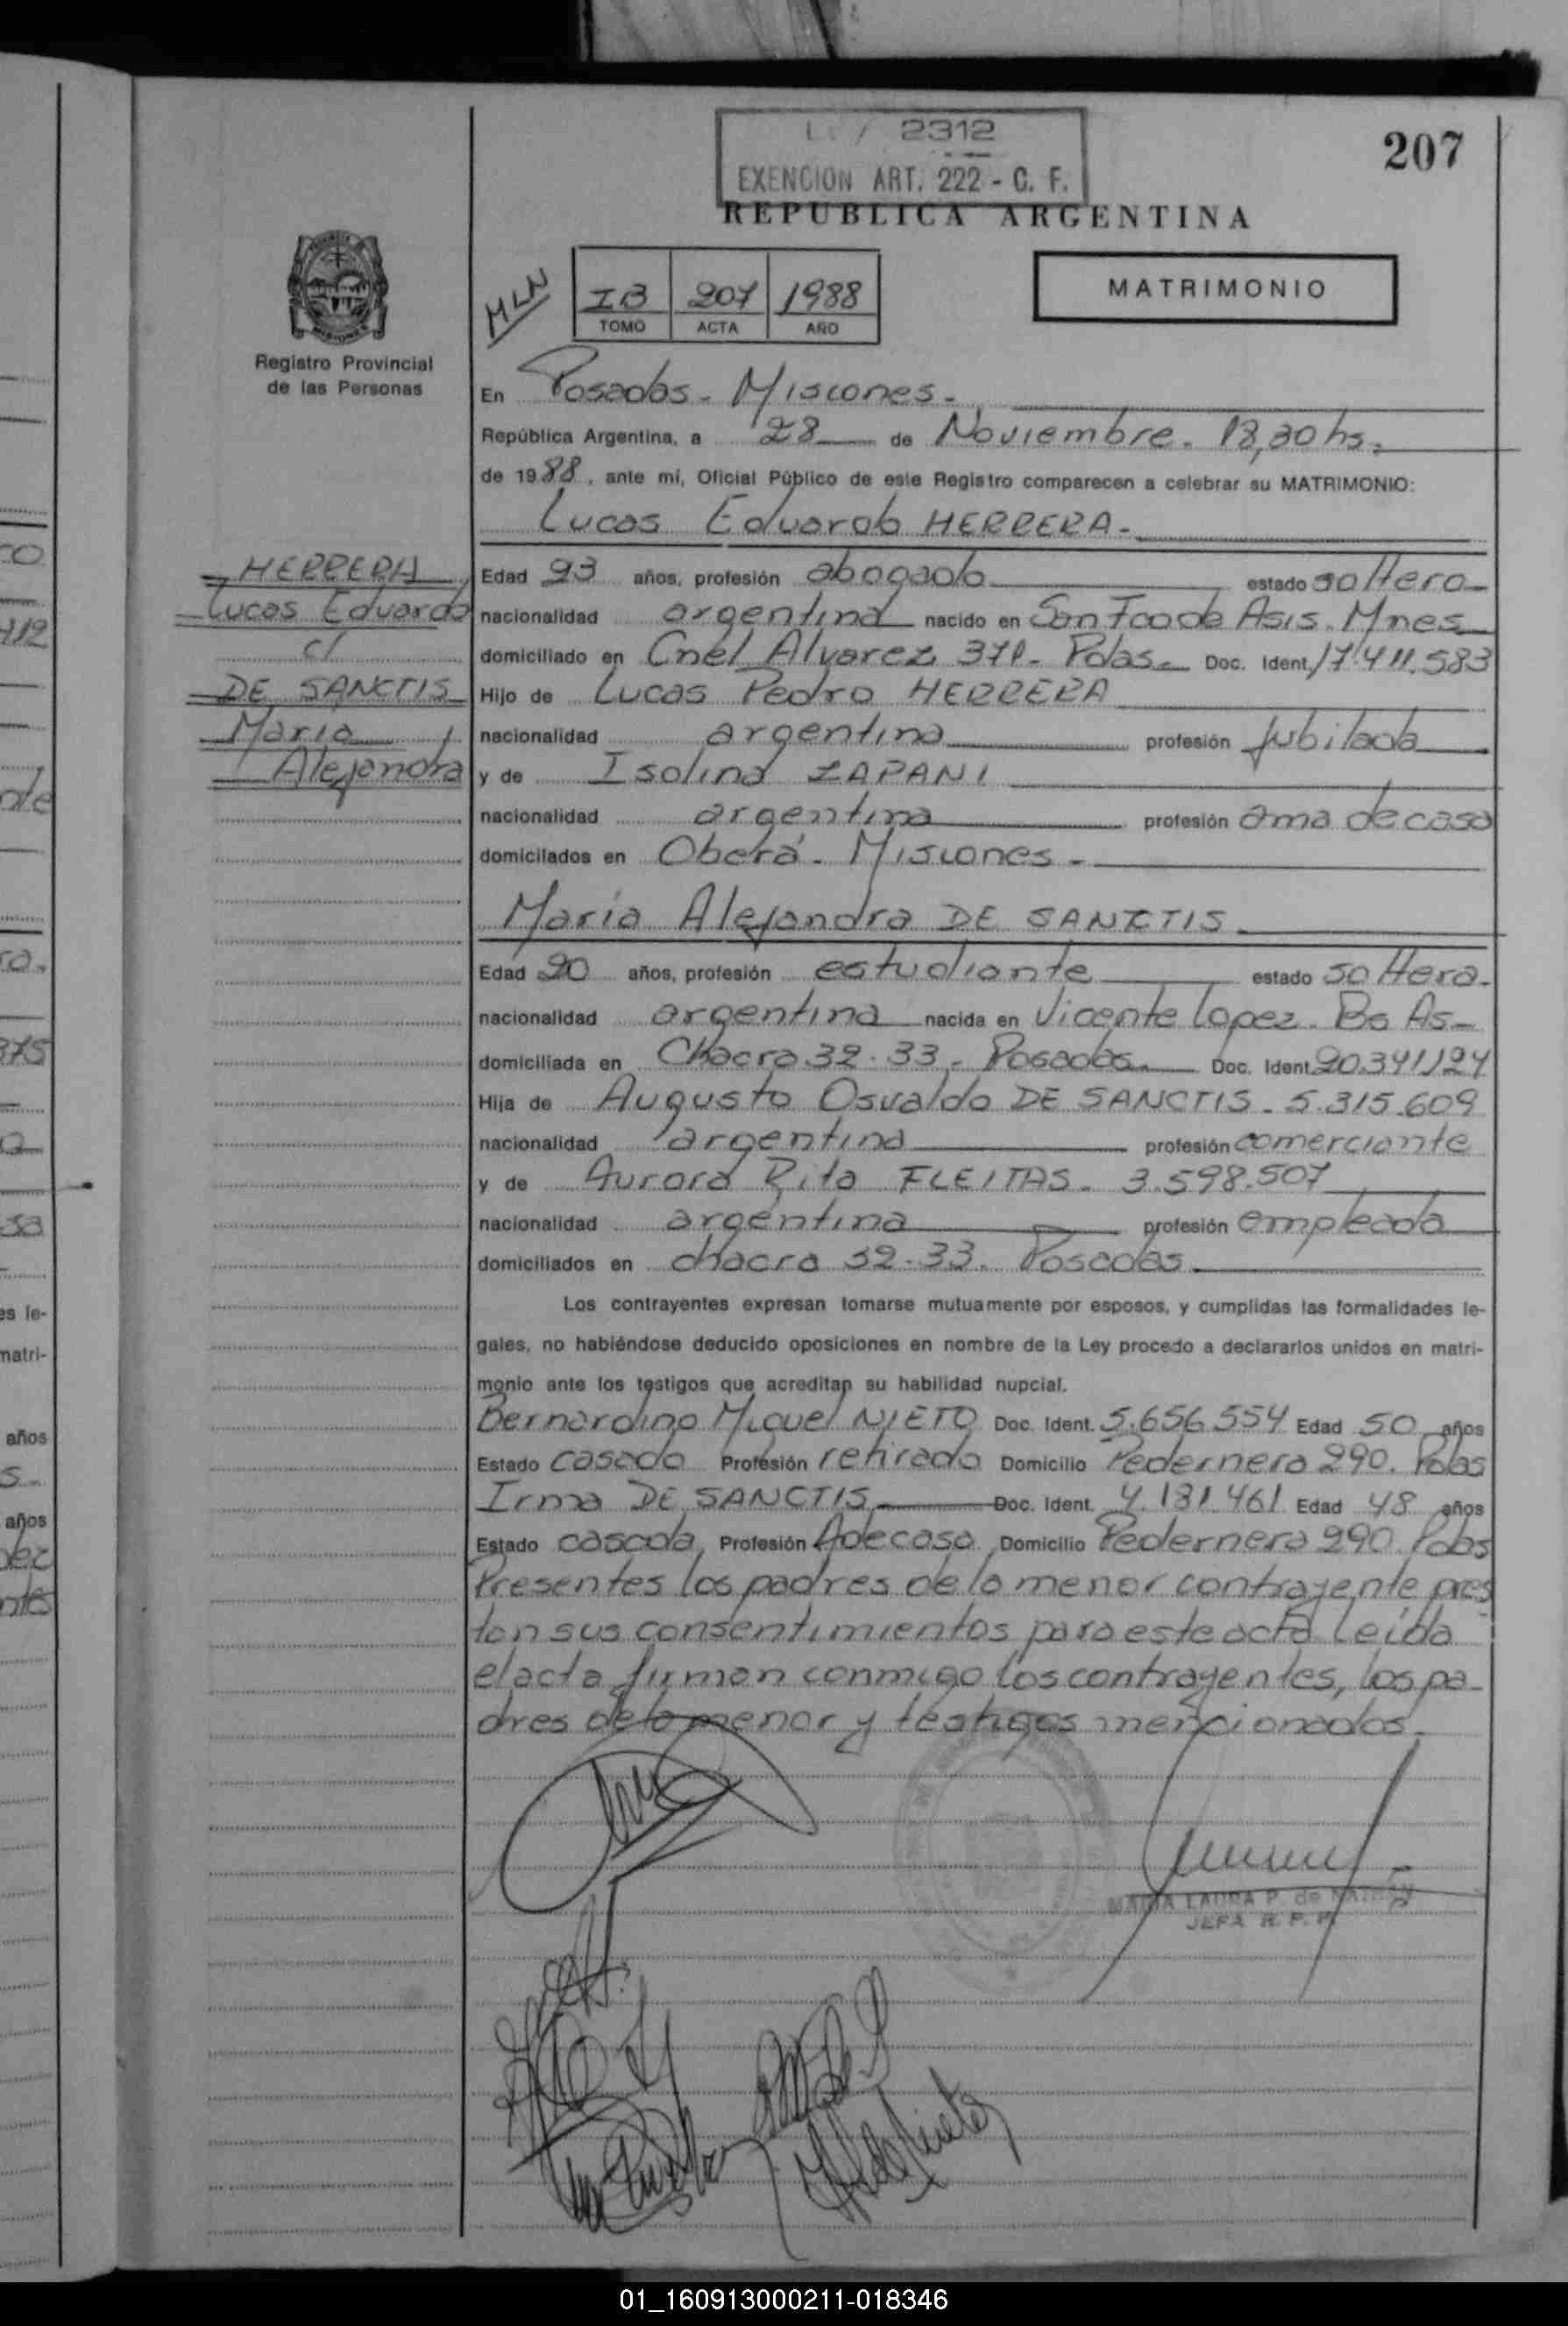 LEY 2312
EXENCION ART. 222 - C. F.
207
REPUBLICA ARGENTINA
MLN
IB 207 1988
TOMO ACTA AÑO
MATRIMONIO
Registro Provincial
de las Personas
En Posadas - Misiones -
República Argentina, a 28 de Noviembre. 18,30 hs.
de 1988, ante mí, Oficial Público de este Registro comparecen a celebrar su MATRIMONIO:
Lucas Eduardo HERRERA -
HERRERA
Lucas Eduardo
c/
DE SANCTIS
Maria
Alejandra
Edad 23 años, profesión abogado estado soltero
nacionalidad argentina nacido en San Fco de Asis. Mnes
domiciliado en Cnel Alvarez 371 - Pdas - Doc. Ident. 17.411.583
Hijo de Lucas Pedro HERRERA
nacionalidad argentina profesión Jubilado
y de Isolina ZAPANI
nacionalidad argentina profesión ama de casa
domicilados en Oberá - Misiones -
María Alejandra DE SANCTIS
Edad 20 años, profesión estudiante estado soltera.
nacionalidad argentina nacida en Vicente Lopez. Bs As
domiciliada en Chacra 32-33 - Posadas. Doc. Ident. 20.341.124
Hija de Augusto Osvaldo DE SANCTIS - 5.315.609
nacionalidad argentina profesión comerciante
y de Aurora Rita FLEITAS - 3.598.507
nacionalidad argentina profesión empleada
domiciliados en chacra 32-33. Posadas
Los contrayentes expresan tomarse mutuamente por esposos, y cumplidas las formalidades le-
gales, no habiéndose deducido oposiciones en nombre de la Ley procedo a declararlos unidos en matri-
monio ante los testigos que acreditan su habilidad nupcial.
Bernardino Miguel NIETO Doc. Ident. 5.656.554 Edad 50 años
Estado casado Profesión retirado Domicilio Pedernera 290. Pdas
Irma DE SANCTIS Doc. Ident. 4.131.461 Edad 48 años
Estado casada Profesión A de casa Domicilio Pedernera 290 Pdas
Presentes los padres de la menor contrayente pres
tan sus consentimientos para este acto Leída
el acta firman conmigo los contrayentes, los pa-
dres de la menor y testigos mencionados.
MARIA LAURA P. de
JEFA R. P. P.
01_160913000211-018346